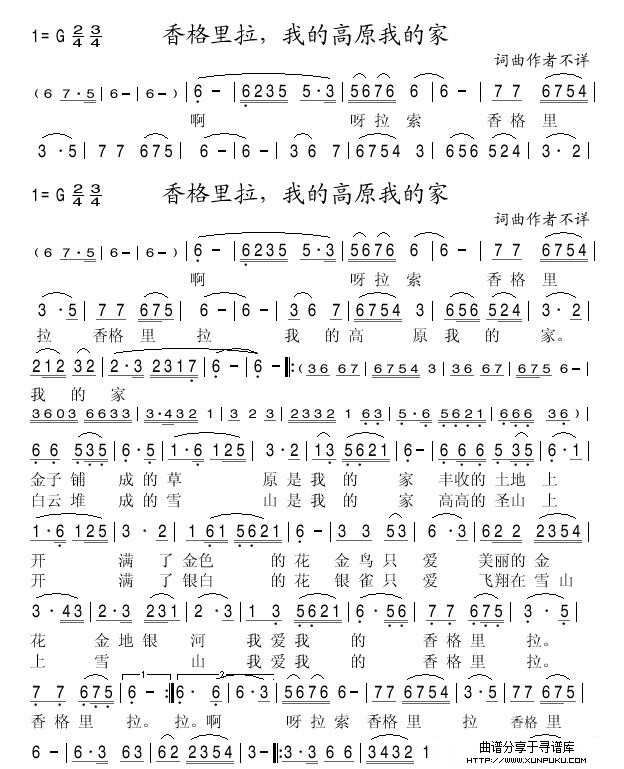 1=G 2/4 3/4 香格里拉，我的高原我的家
词曲作者不详
(6 7·5 | 6- | 6- ) | 6 - | 6235 5·3 | 5676 6 | 6 - | 7 7 6754 |
啊 呀拉索 香格里
3·5 | 7 7 675 | 6 - | 6 - | 3 6 7 | 6754 3 | 656 524 | 3· 2 |
1=G 2/4 3/4 香格里拉，我的高原我的家
词曲作者不详
(6 7·5 | 6- | 6- ) | 6 - | 6235 5·3 | 5676 6 | 6 - | 7 7 6754 |
啊 呀拉索 香格里
3·5 | 7 7 675 | 6 - | 6 - | 3 6 7 | 6754 3 | 656 524 | 3· 2 |
拉 香格里拉 我的高原我的家。
212 32 | 2·3 2317 | 6 - | 6 - ‖: (36 67 | 6754 3 | 36 67 | 675 6- |
我的家
3603 6633 | 3·432 1 | 3 2 3 | 2332 1 63 | 5·6 5621 | 666 36 ) |
6 6 535 | 6·5 | 1·6 125 | 3·2 | 13 5621 | 6- | 6 6 6 5 35 | 6·1 |
金子铺成的草原是我的家丰收的土地上
白云堆成的雪山是我的家高高的圣山上
1·6 125 | 3·2 | 1 61 5621 | 6 - | 3 3 53 | 6·3 | 62 2 2354 |
开满了金色的花金鸟只爱美丽的金
开满了银白的花银雀只爱飞翔在雪山
3·43 | 2·3 231 | 2·3 | 1 3 5621 | 6·56 | 7 7 675 | 3·5 |
花金地银河我爱我的香格里拉。
上雪山我爱我的香格里拉。
7 7 675 | 1 6 - :‖ 2 6· 6 | 6·3 | 5676 6- | 77 6754 | 35 | 77 6754 |
香格里拉。拉。啊呀拉索香格里拉香格里
6 - | 6·3 | 63 | 62 2354 | 3- ‖: 3·3 66 | 3432 1
曲谱分享于寻谱库
HTTP://WWW.XUNPUKU.COM